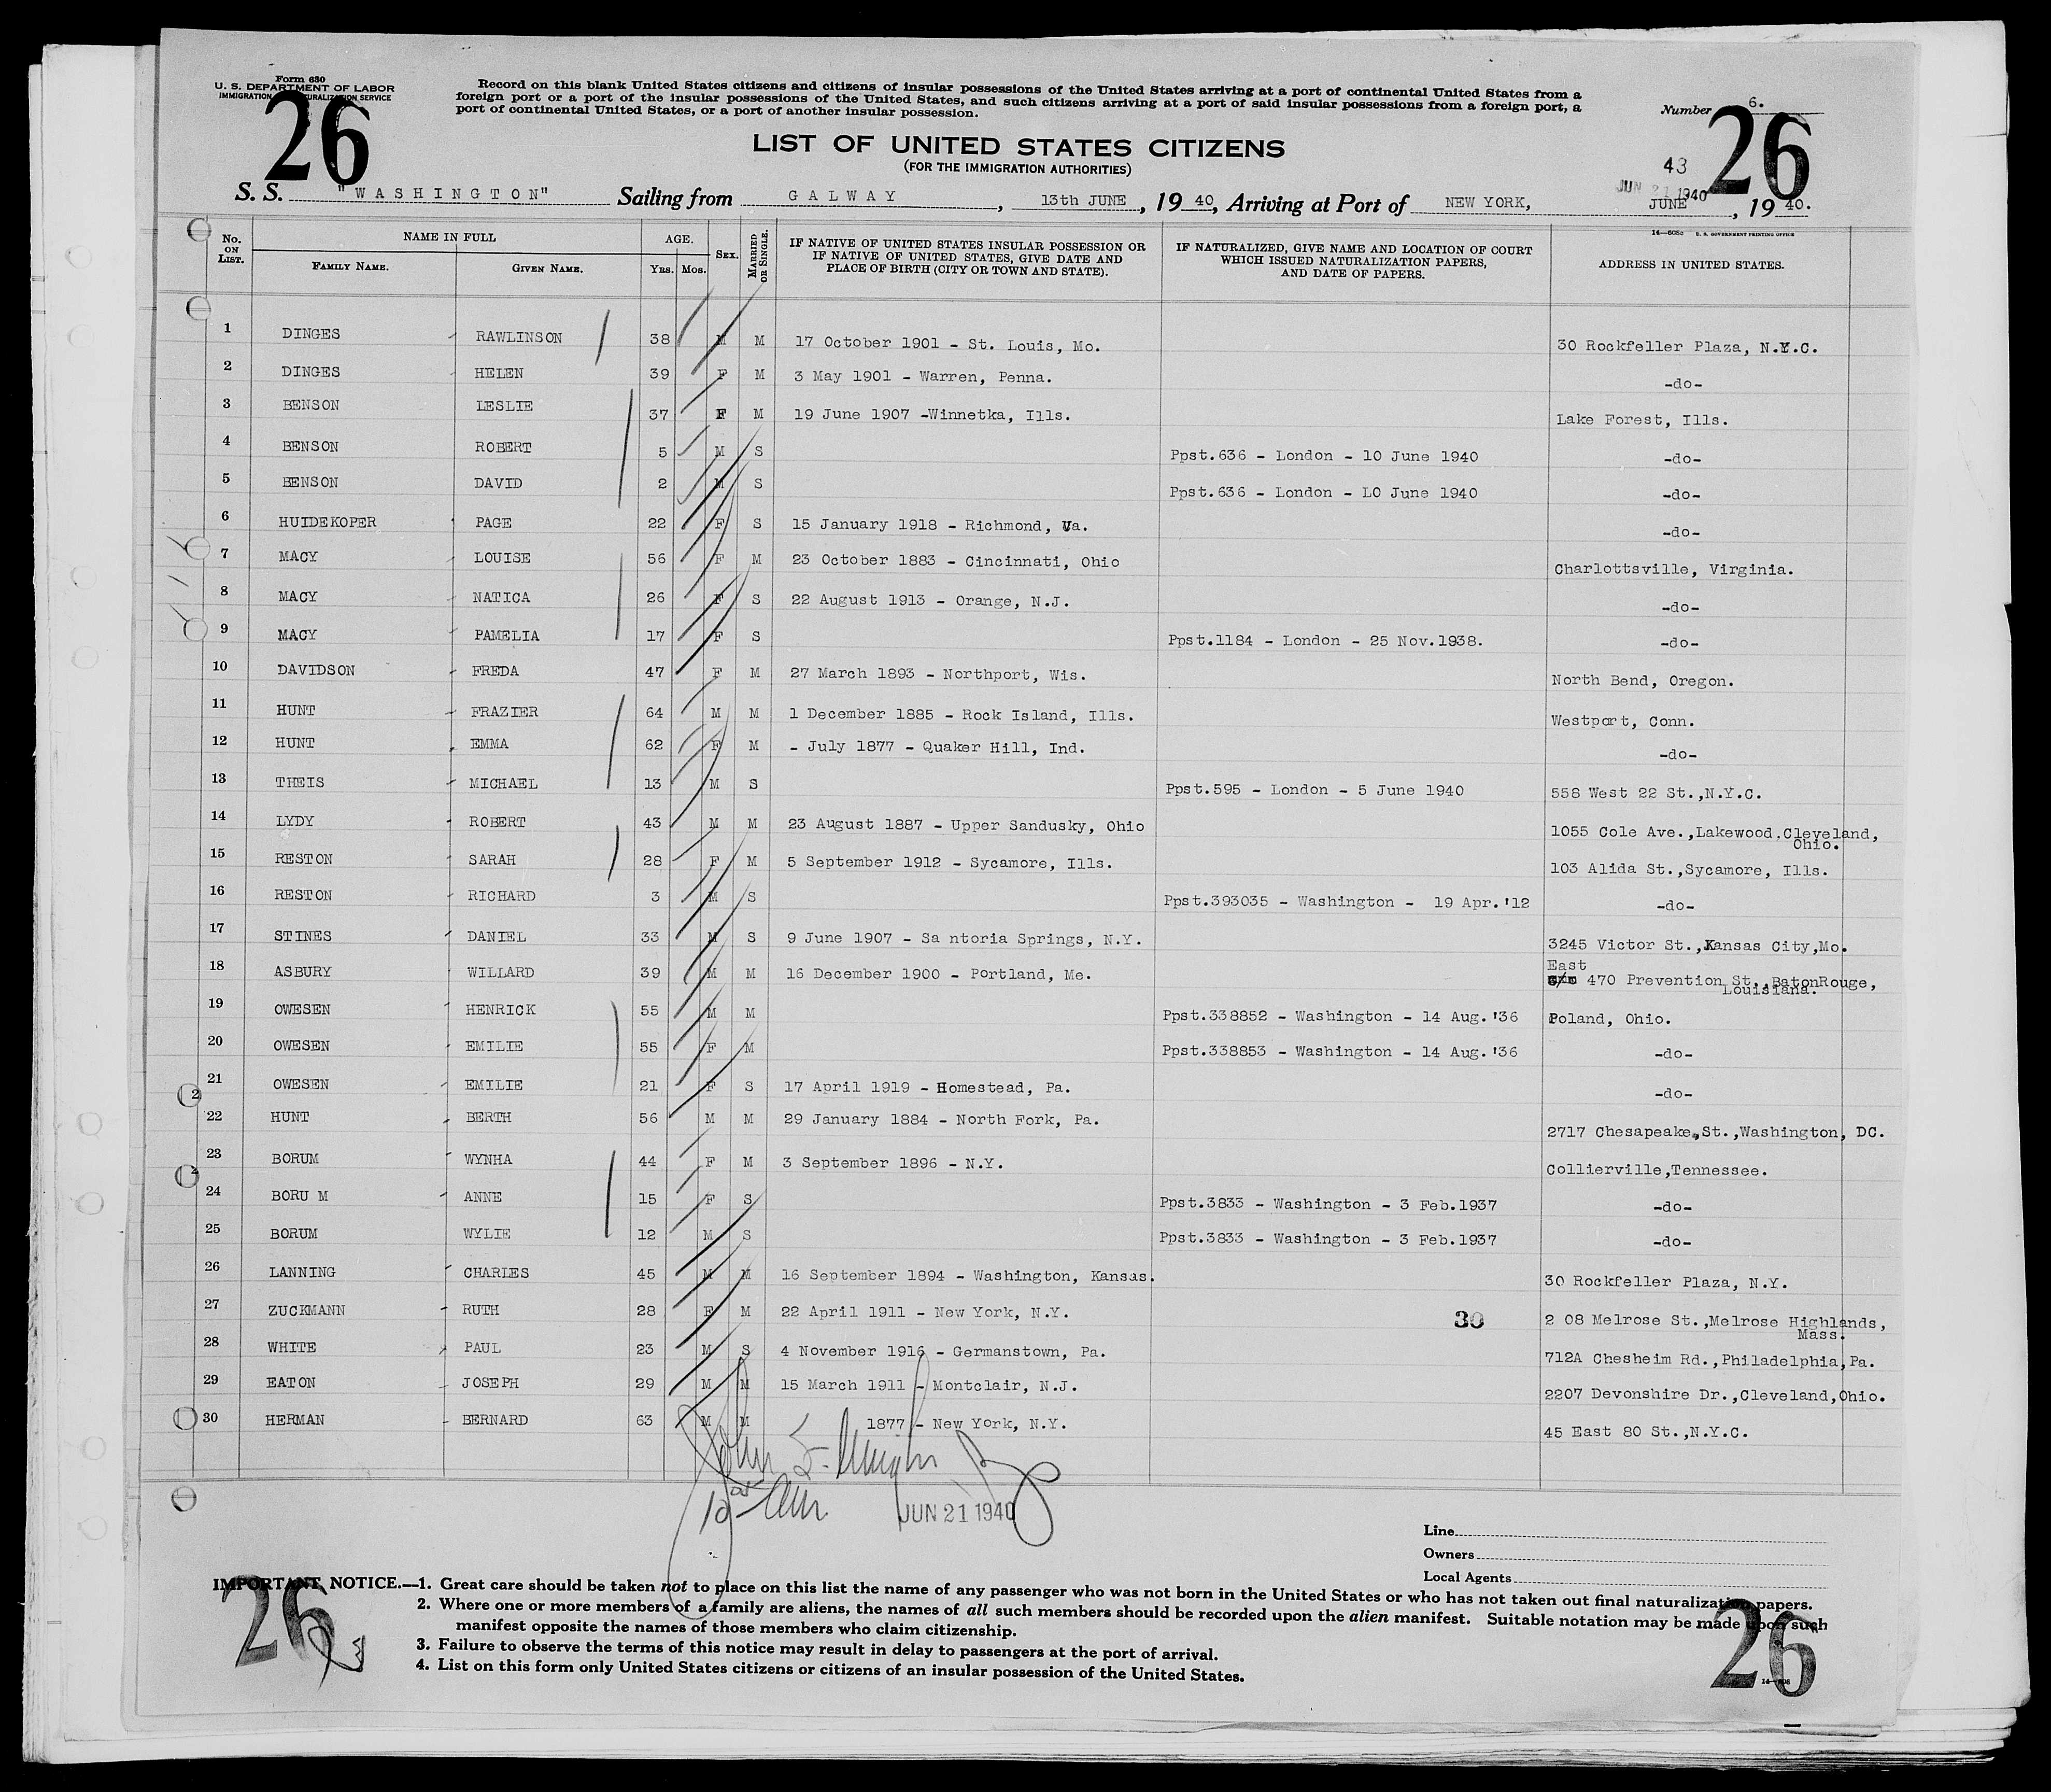 Form 630
U. S. DEPARTMENT OF LABOR
IMMIGRATION NATURALIZATION SERVICE
26
Record on this blank United States citizens and citizens of insular possessions of the United States arriving at a port of continental United States from a
foreign port or a port of the insular possessions of the United States, and such citizens arriving at a port of said insular possessions from a foreign port, a
port of continental United States, or a port of another insular possession.
Number 6.
26
LIST OF UNITED STATES CITIZENS
(FOR THE IMMIGRATION AUTHORITIES)
43
JUN 21 1940
S. S. "WASHINGTON" Sailing from GALWAY, 13th JUNE, 19 40, Arriving at Port of NEW YORK, JUNE, 19 40.
14—608c U. S. GOVERNMENT PRINTING OFFICE
No. ON LIST. NAME IN FULL FAMILY NAME. GIVEN NAME. AGE. YRS. MOS. SEX. MARRIED OR SINGLE. IF NATIVE OF UNITED STATES INSULAR POSSESSION OR IF NATIVE OF UNITED STATES, GIVE DATE AND PLACE OF BIRTH (CITY OR TOWN AND STATE). IF NATURALIZED, GIVE NAME AND LOCATION OF COURT WHICH ISSUED NATURALIZATION PAPERS, AND DATE OF PAPERS. ADDRESS IN UNITED STATES.
1 DINGES RAWLINSON 38 M M 17 October 1901 - St. Louis, Mo. 30 Rockfeller Plaza, N.Y.C.
2 DINGES HELEN 39 F M 3 May 1901 - Warren, Penna. -do-
3 BENSON LESLIE 37 F M 19 June 1907 -Winnetka, Ills. Lake Forest, Ills.
4 BENSON ROBERT 5 M S Ppst.636 - London - 10 June 1940 -do-
5 BENSON DAVID 2 M S Ppst.636 - London - L0 June 1940 -do-
6 HUIDEKOPER PAGE 22 F S 15 January 1918 - Richmond, Va. -do-
7 MACY LOUISE 56 F M 23 October 1883 - Cincinnati, Ohio Charlottsville, Virginia.
8 MACY NATICA 26 F S 22 August 1913 - Orange, N.J. -do-
9 MACY PAMELIA 17 F S Ppst.1184 - London - 25 Nov.1938. -do-
10 DAVIDSON FREDA 47 F M 27 March 1893 - Northport, Wis. North Bend, Oregon.
11 HUNT FRAZIER 64 M M 1 December 1885 - Rock Island, Ills. Westport, Conn.
12 HUNT EMMA 62 F M - July 1877 - Quaker Hill, Ind. -do-
13 THEIS MICHAEL 13 M S Ppst.595 - London - 5 June 1940 558 West 22 St.,N.Y.C.
14 LYDY ROBERT 43 M M 23 August 1887 - Upper Sandusky, Ohio 1055 Cole Ave.,Lakewood.Cleveland, Ohio.
15 RESTON SARAH 28 F M 5 September 1912 - Sycamore, Ills. 103 Alida St.,Sycamore, Ills.
16 RESTON RICHARD 3 M S Ppst.393035 - Washington - 19 Apr.'12 -do-
17 STINES DANIEL 33 M S 9 June 1907 - Sa ntoria Springs, N.Y. 3245 Victor St.,Kansas City,Mo.
18 ASBURY WILLARD 39 M M 16 December 1900 - Portland, Me. East 470 Prevention St.,BatonRouge, Louisiana.
19 OWESEN HENRICK 55 M M Ppst.338852 - Washington - 14 Aug.'36 Poland, Ohio.
20 OWESEN EMILIE 55 F M Ppst.338853 - Washington - 14 Aug.'36 -do-
21 OWESEN EMILIE 21 F S 17 April 1919 - Homestead, Pa. -do-
22 HUNT BERTH 56 M M 29 January 1884 - North Fork, Pa. 2717 Chesapeake,St.,Washington, DC.
23 BORUM WYNHA 44 F M 3 September 1896 - N.Y. Collierville,Tennessee.
24 BORU M ANNE 15 F S Ppst.3833 - Washington - 3 Feb.1937 -do-
25 BORUM WYLIE 12 M S Ppst.3833 - Washington - 3 Feb.1937 -do-
26 LANNING CHARLES 45 M M 16 September 1894 - Washington, Kansas. 30 Rockfeller Plaza, N.Y.
27 ZUCKMANN RUTH 28 F M 22 April 1911 - New York, N.Y. 30 2 08 Melrose St.,Melrose Highlands, Mass.
28 WHITE PAUL 23 M S 4 November 1916 - Germanstown, Pa. 712A Chesheim Rd.,Philadelphia,Pa.
29 EATON JOSEPH 29 M M 15 March 1911 - Montclair, N.J. 2207 Devonshire Dr.,Cleveland,Ohio.
30 HERMAN BERNARD 63 M M 1877 - New York, N.Y. 45 East 80 St.,N.Y.C.
JUN 21 1940
Line
Owners
Local Agents
IMPORTANT NOTICE.—1. Great care should be taken not to place on this list the name of any passenger who was not born in the United States or who has not taken out final naturalization papers.
2. Where one or more members of a family are aliens, the names of all such members should be recorded upon the alien manifest. Suitable notation may be made upon such
manifest opposite the names of those members who claim citizenship.
3. Failure to observe the terms of this notice may result in delay to passengers at the port of arrival.
4. List on this form only United States citizens or citizens of an insular possession of the United States.
26
26